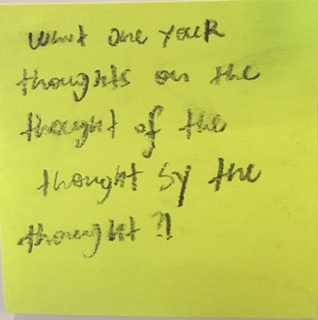 what are your
thoughts on the
thought of the
thought by the
thought?!